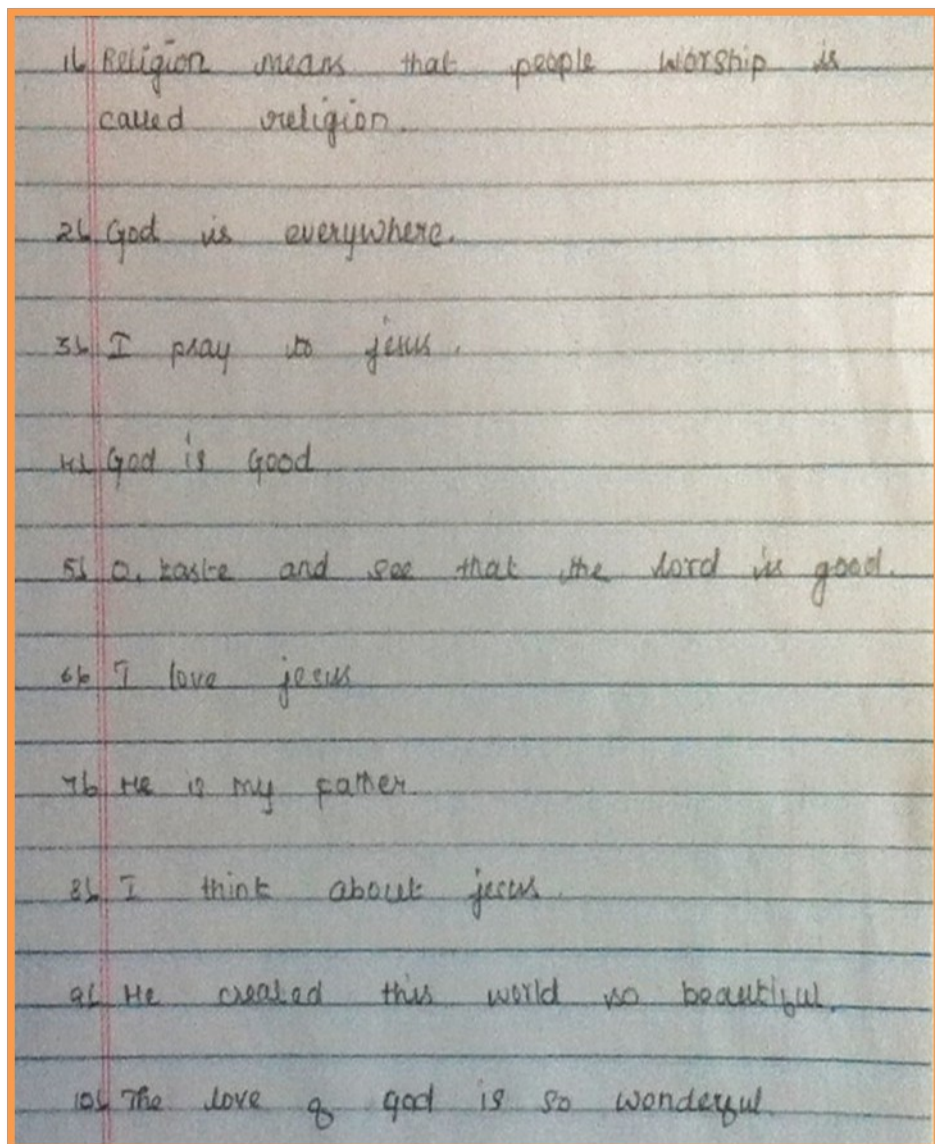 1) Religion means that people worship is
called religion.
2) God is everywhere.
3) I pray to jesus.
4) God is Good
5) O, taste and see that the lord is good.
6) I love jesus
7) He is my father
8) I think about jesus.
9) He created this world so beautiful.
10) The love of god is so wonderful.